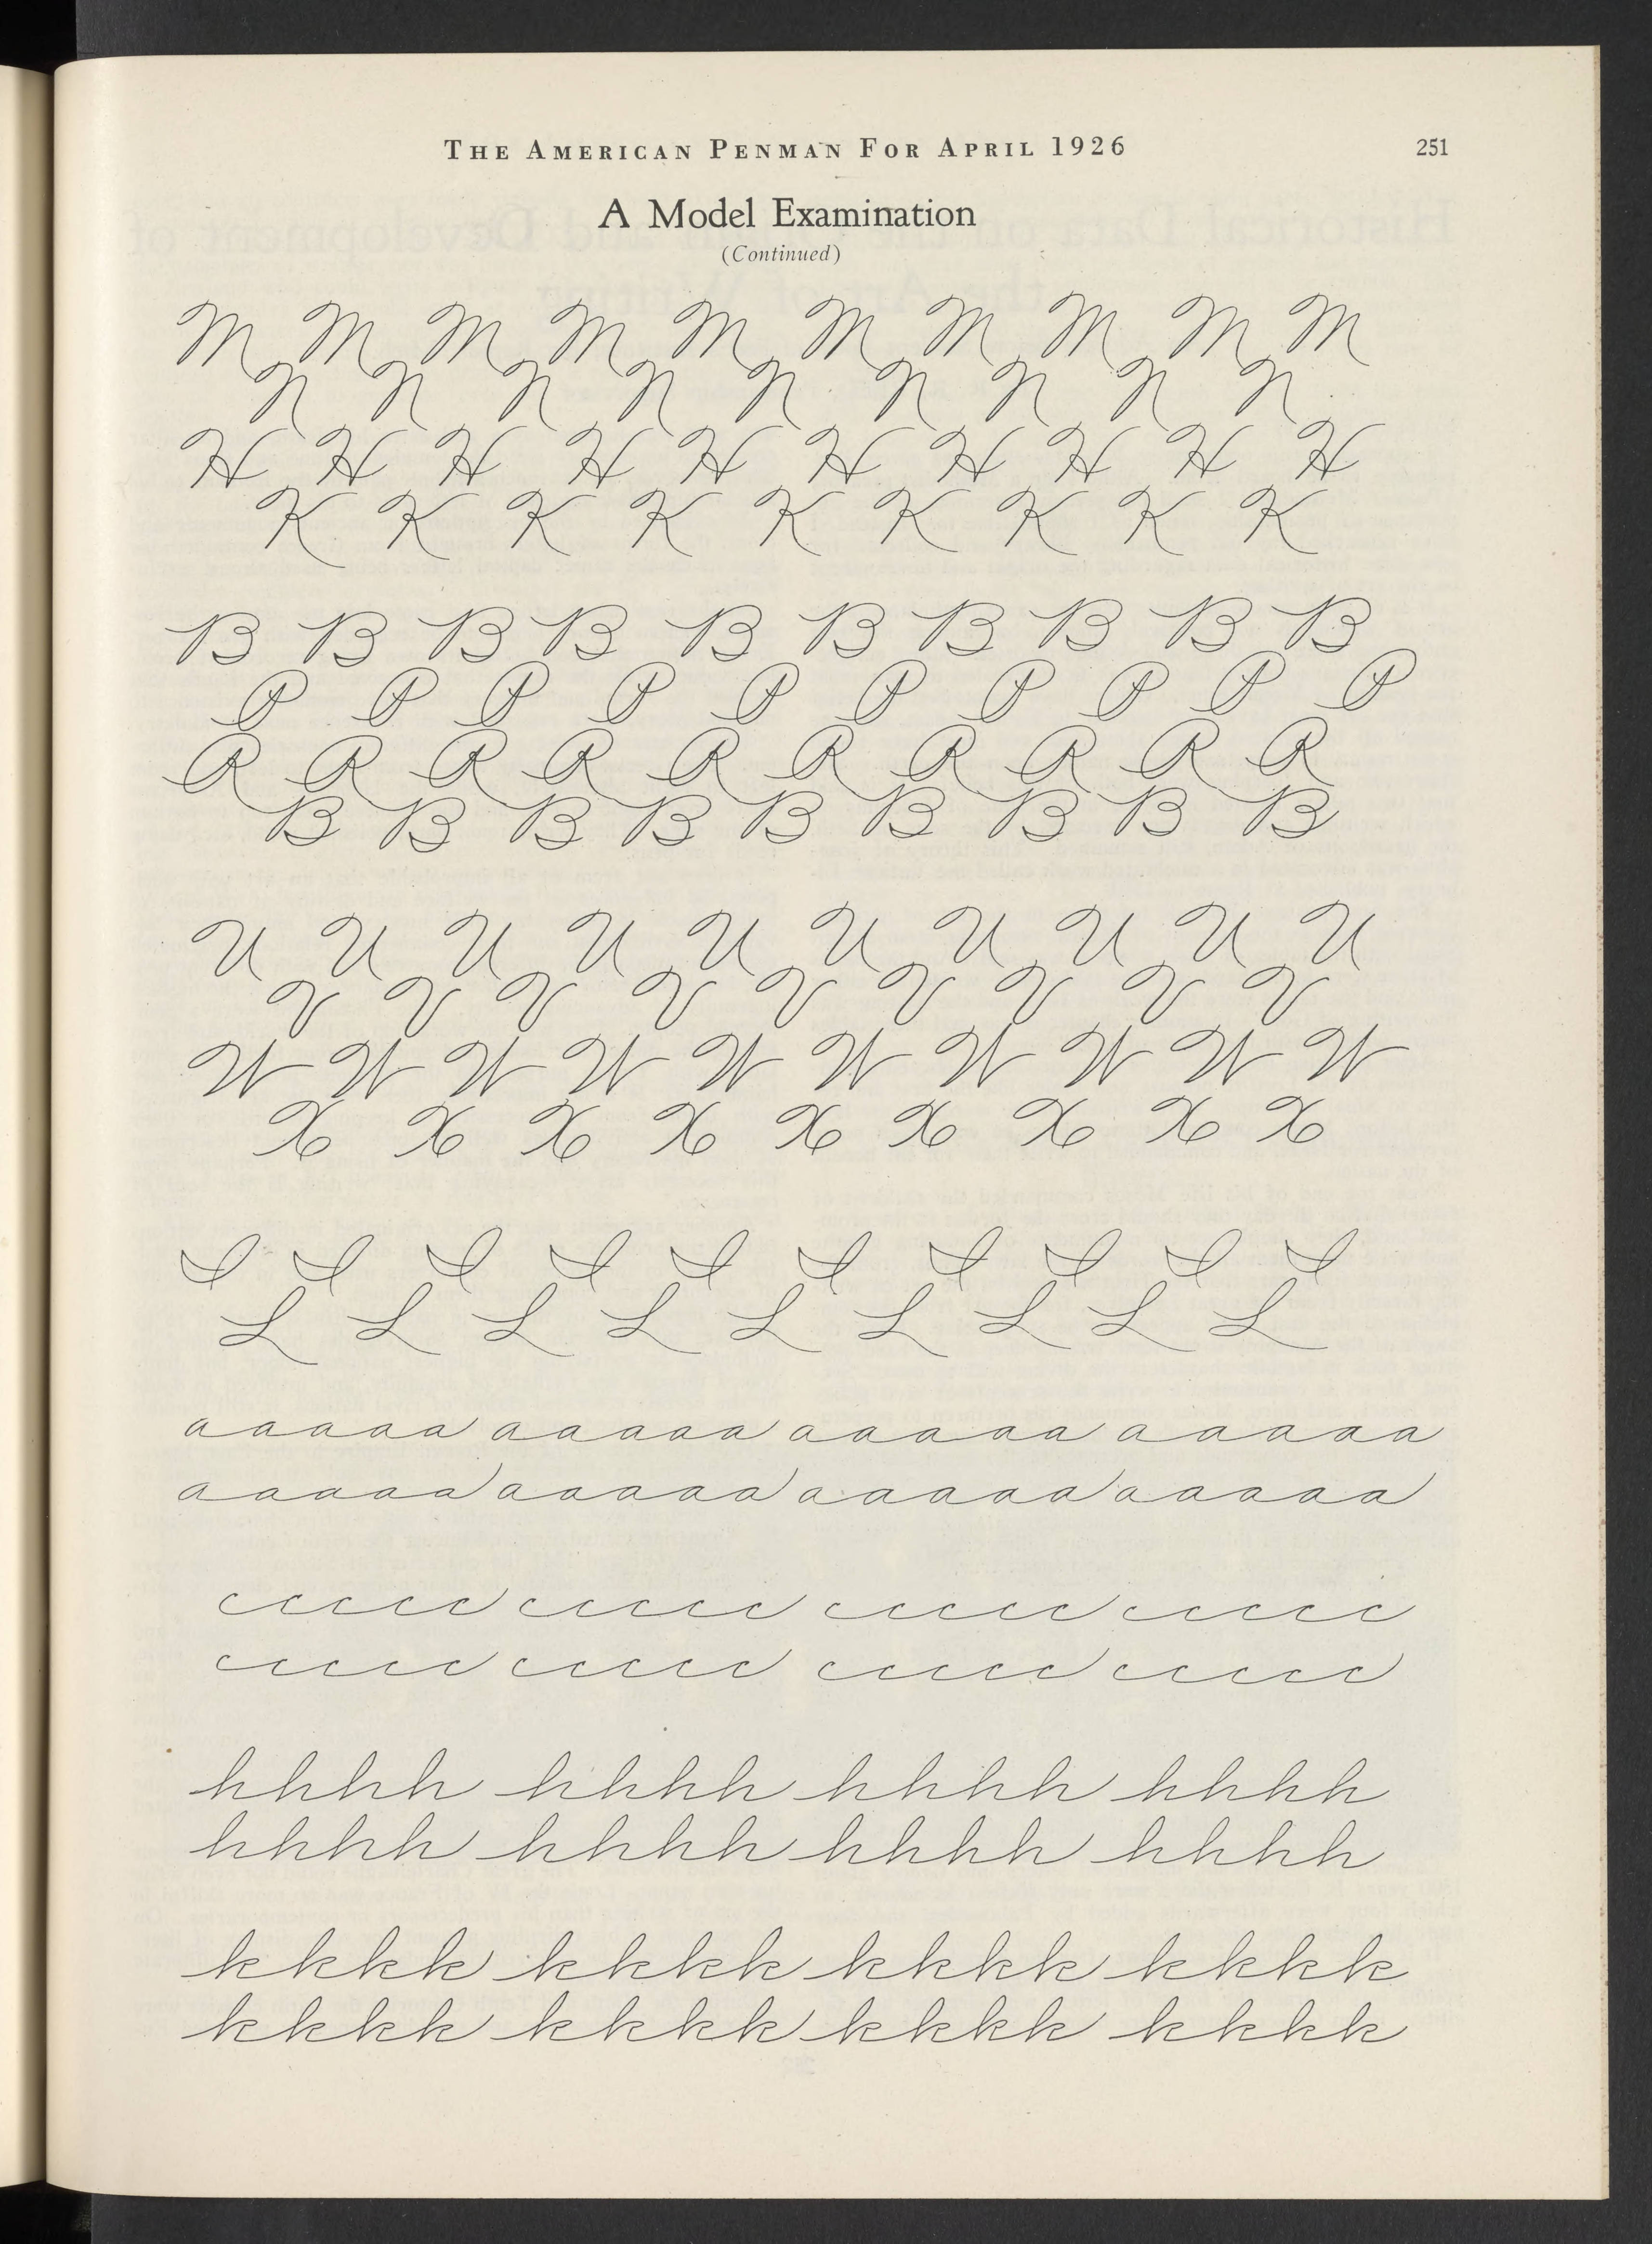 THE AMERICAN PENMAN FOR APRIL 1926 251
A Model Examination
(Continued)
M M M M M M M M M M
N N N N N N N N N
H H H H H H H H H H
K K K K K K K K K
B B B B B B B B B B
P P P P P P P P P P
R R R R R R R R R R
B B B B B B B B B
U U U U U U U U U U
V V V V V V V V V
W W W W W W W W W W
X X X X X X X X X
S S S S S S S S S S
L L L L L L L L L
aaaaa aaaaa aaaaa aaaaa
aaaaa aaaaa aaaaa aaaaa
ccccc ccccc ccccc ccccc
ccccc ccccc ccccc ccccc
hhhh hhhh hhhh hhhh
hhhh hhhh hhhh hhhh
kkkk kkkk kkkk kkkk
kkkk kkkk kkkk kkkk